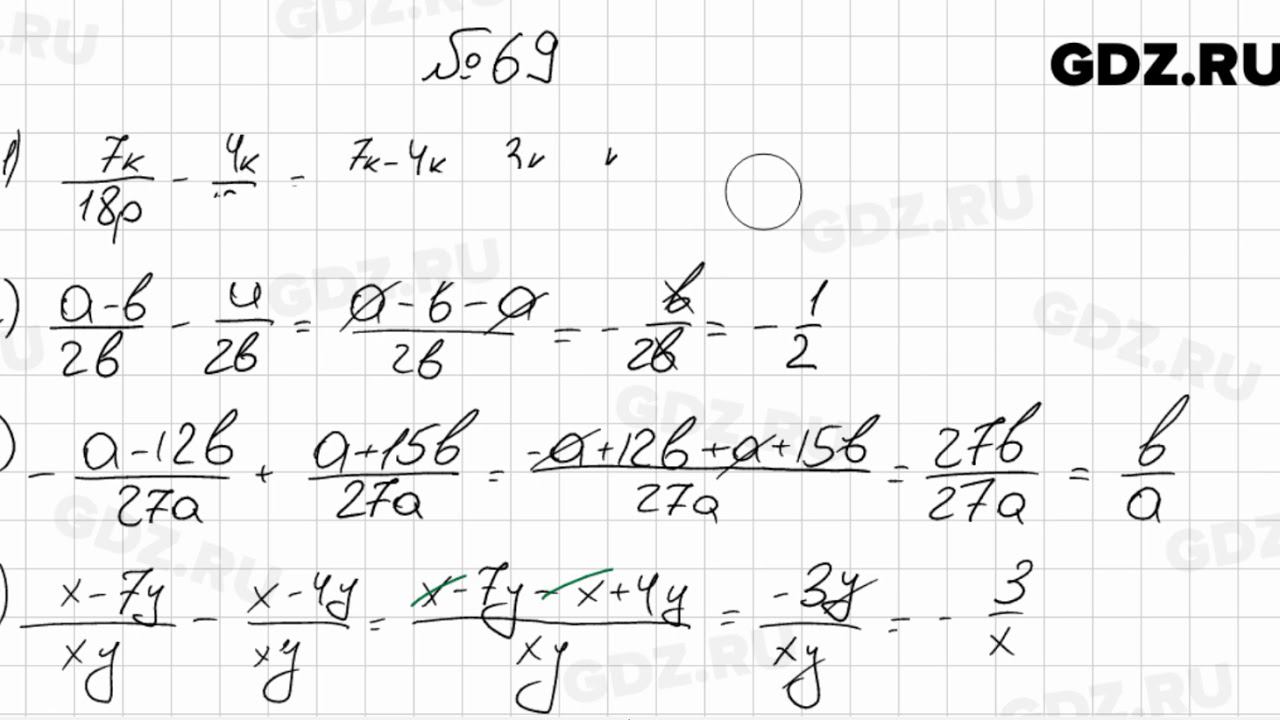 №69
GDZ.RU
1) 7к/18р - 4к/ = 7к-4к 3к к
) (а-в)/2в - а/2в = (а-в-а)/2в = - в/2в = - 1/2
) - (а-12в)/27а + (а+15в)/27а = (-а+12в+а+15в)/27а = 27в/27а = в/а
) (x-7y)/xy - (x-4y)/xy = (x-7y-x+4y)/xy = -3y/xy = - 3/x